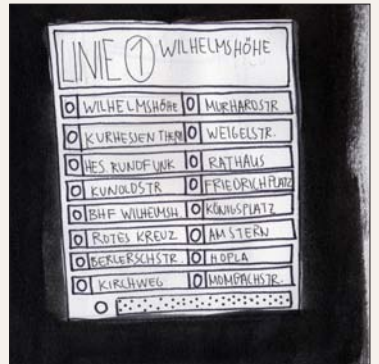 LINIE 1 WILHELMSHÖHE
WILHELMSHÖHE
KURHESSEN THERM
HES. RUNDFUNK
KUNOLDSTR
BHF WILHELMSH.
ROTES KREUZ
BERLERSCHSTR.
KIRCHWEG
MURHARDSTR
WEIGELSTR.
RATHAUS
FRIEDRICHPLATZ
KÖNIGSPLATZ
AM STERN
HOPLA
MOMBACHSTR.